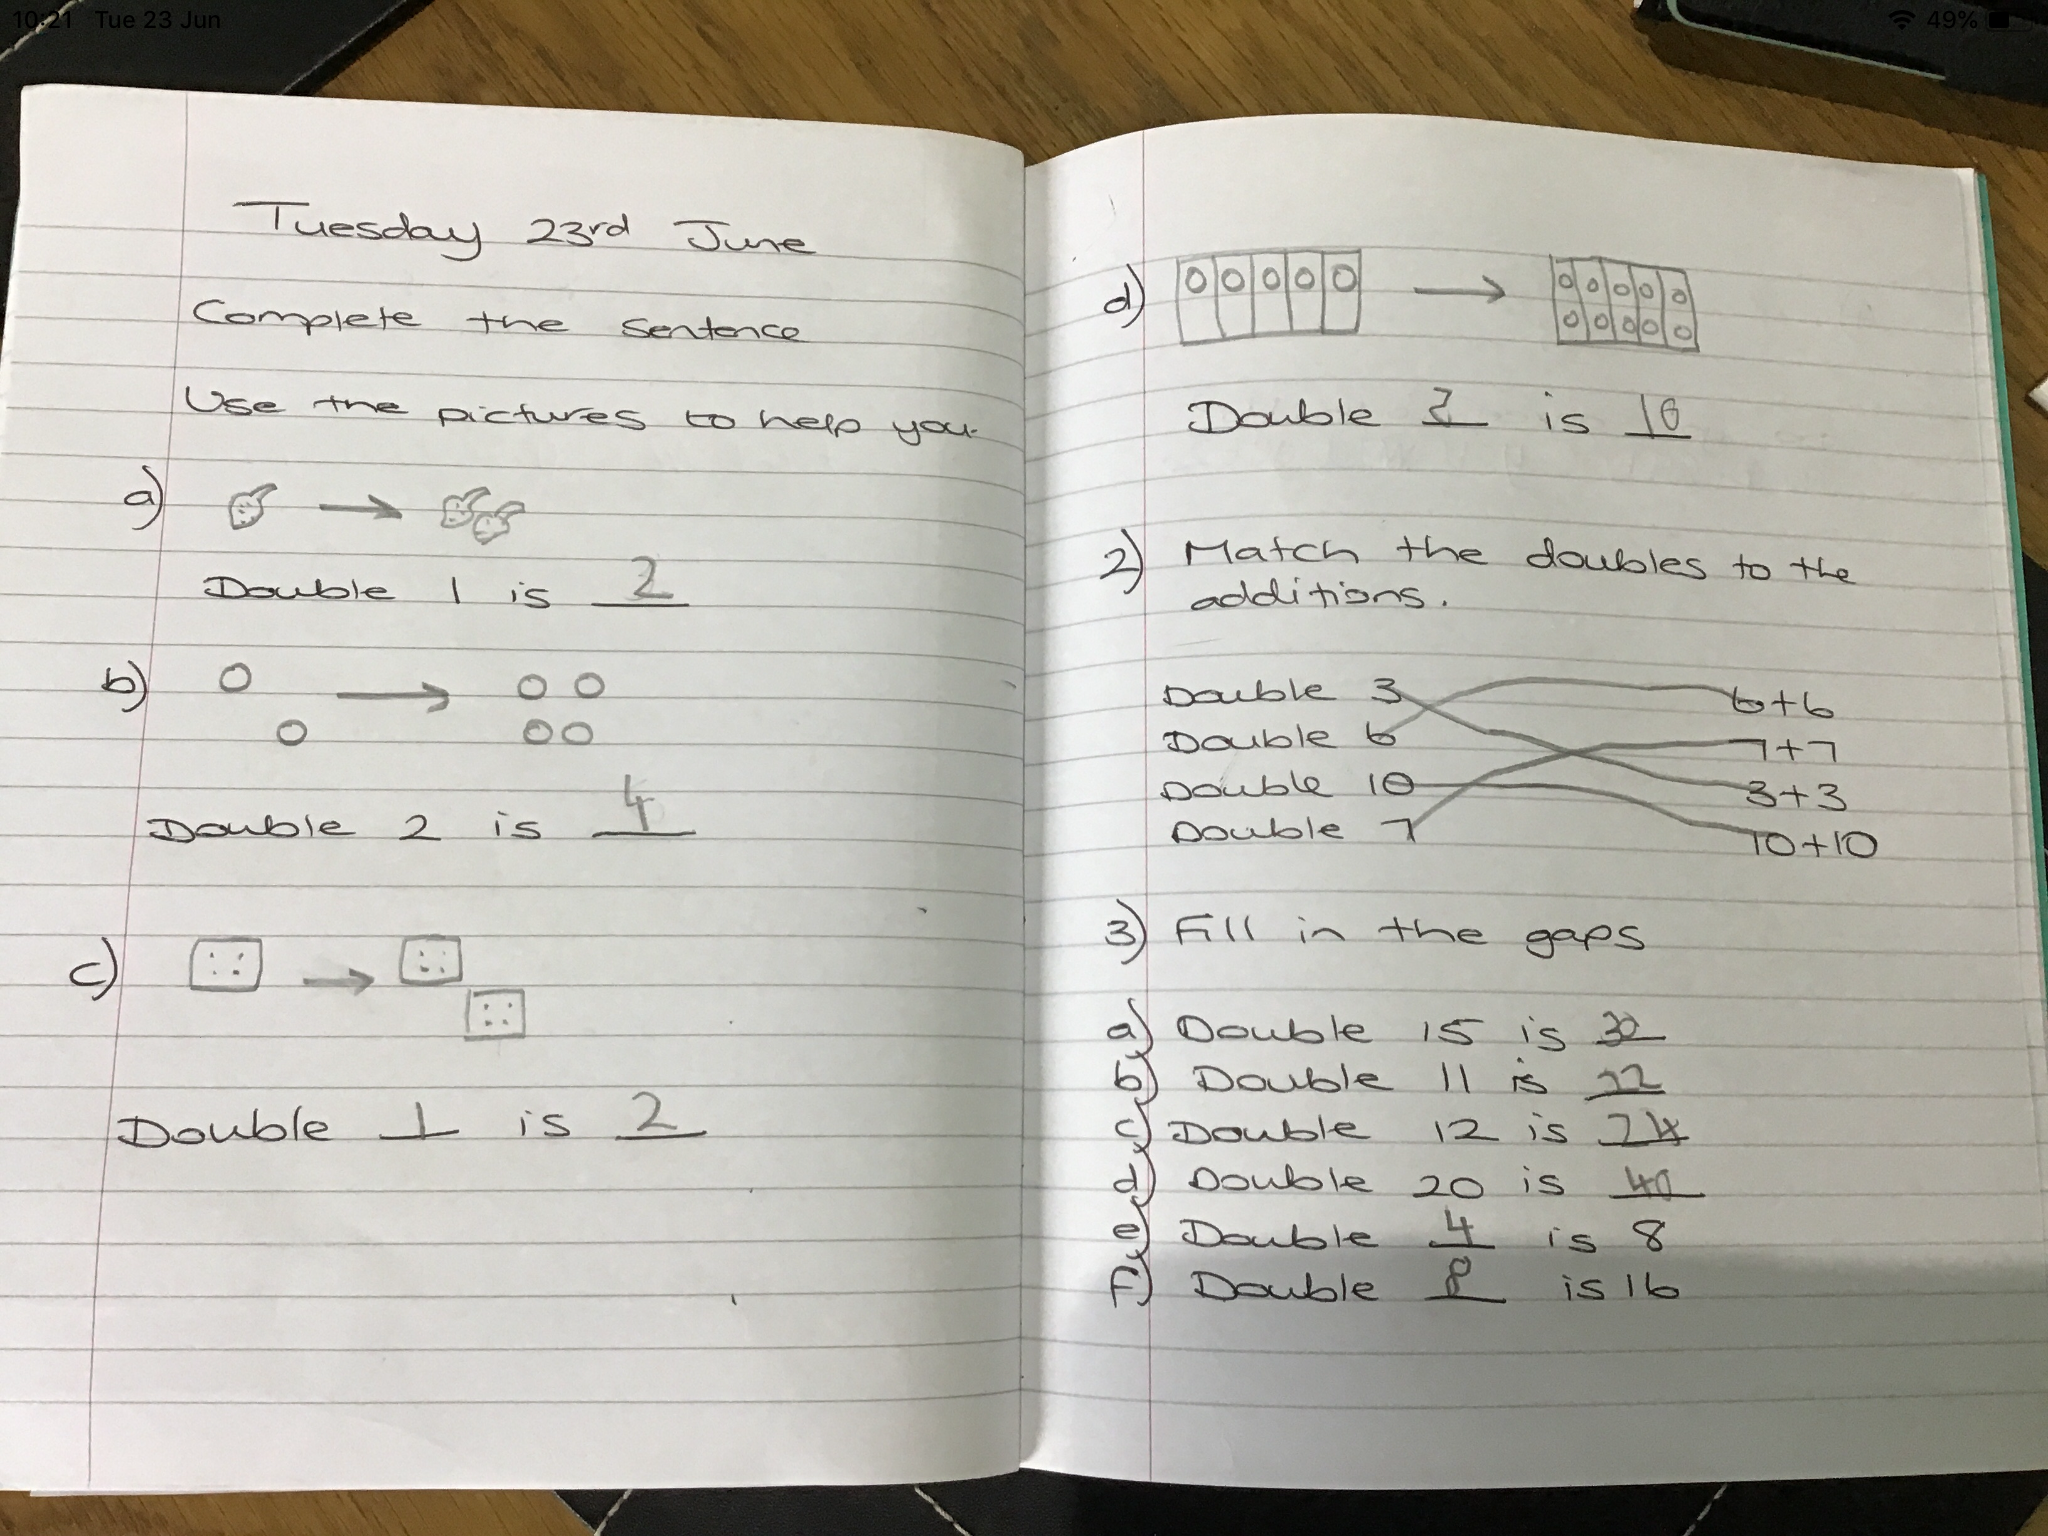 10:21 Tue 23 Jun
49%
Tuesday 23rd June
Complete the sentence
Use the pictures to help you.
a)
Double 1 is 2
b)
Double 2 is 4
c)
Double 1 is 2
d)
Double is 10
2) Match the doubles to the
additions.
Double 3 6+6
Double 6 7+7
Double 10 3+3
Double 7 10+10
3) Fill in the gaps
a) Double 15 is 30
b) Double 11 is 22
c) Double 12 is 24
d) Double 20 is 40
e) Double 4 is 8
f) Double 8 is 16